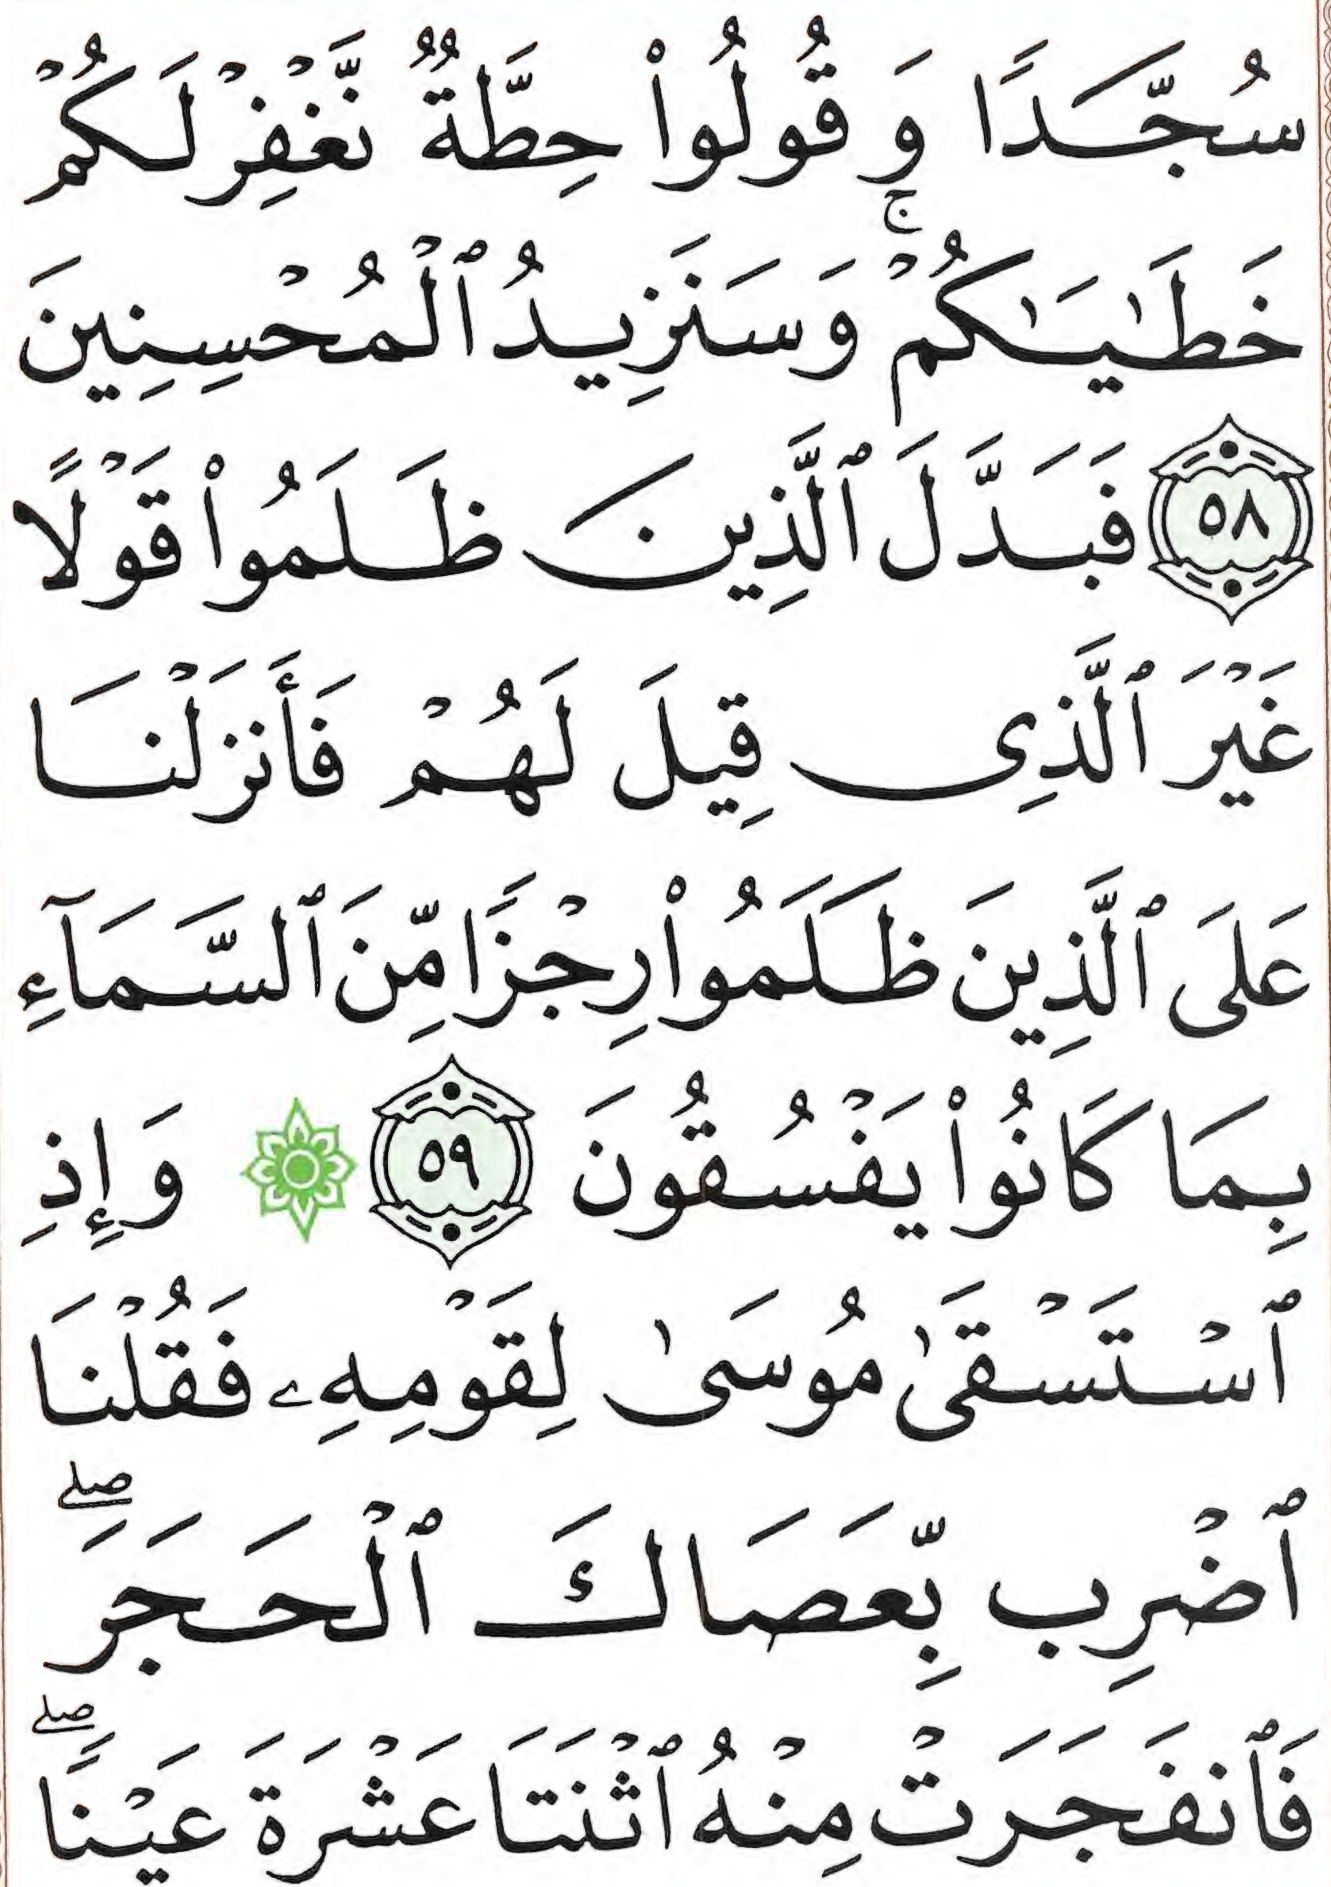 سُجَّدًا وَقُولُوا۟ حِطَّةٌ نَّغْفِرْ لَكُمْ
خَطَـٰيَـٰكُمْ ۚ وَسَنَزِيدُ ٱلْمُحْسِنِينَ
٥٨ فَبَدَّلَ ٱلَّذِينَ ظَلَمُوا۟ قَوْلًا
غَيْرَ ٱلَّذِى قِيلَ لَهُمْ فَأَنزَلْنَا
عَلَى ٱلَّذِينَ ظَلَمُوا۟ رِجْزًا مِّنَ ٱلسَّمَآءِ
بِمَا كَانُوا۟ يَفْسُقُونَ ٥٩ وَإِذِ
ٱسْتَسْقَىٰ مُوسَىٰ لِقَوْمِهِۦ فَقُلْنَا
ٱضْرِب بِّعَصَاكَ ٱلْحَجَرَ ۖ
فَٱنفَجَرَتْ مِنْهُ ٱثْنَتَا عَشْرَةَ عَيْنًا ۖ